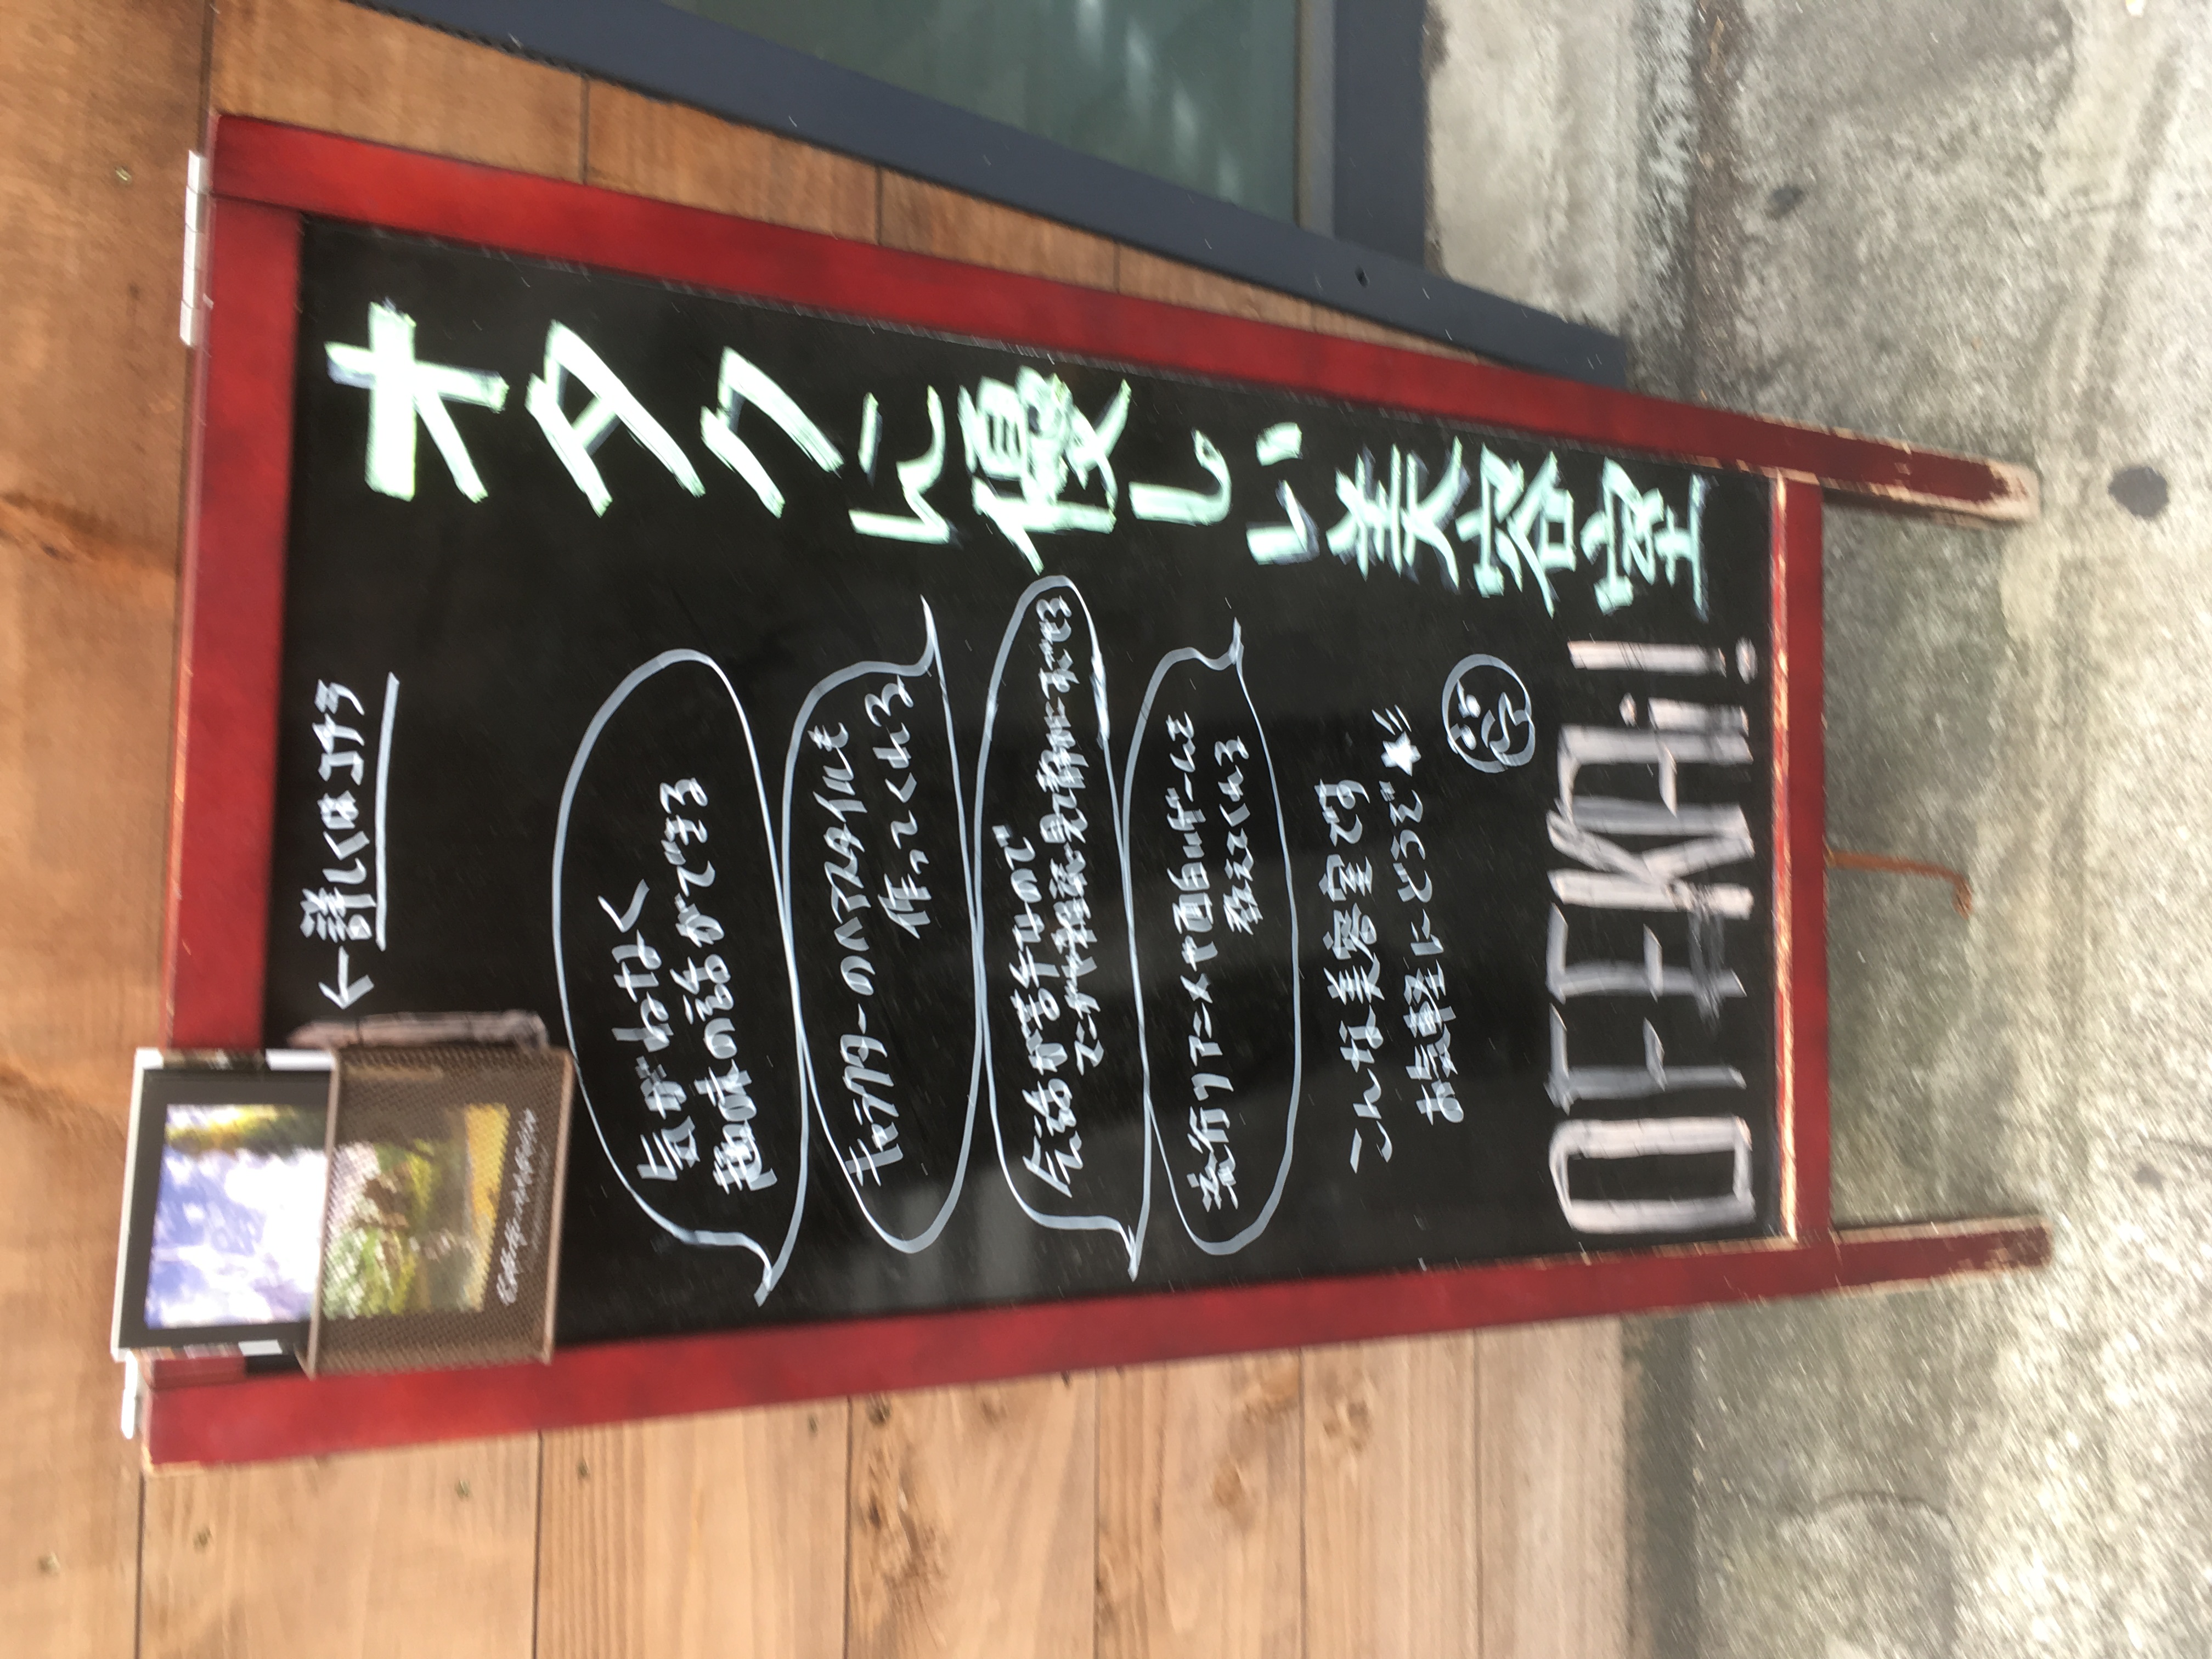 オタクに優しい美容室
←詳しくはコチラ
気がねなく
趣味の話ができる
キャラクターのヘアスタイルも
作ってくれる
会話が苦手なので
マンガや雑誌見て静かにすごせる
流行りアニメや面白いゲームを
教えてくれる
こんな美容室です
お気軽にどうぞ★
OFFKAi!